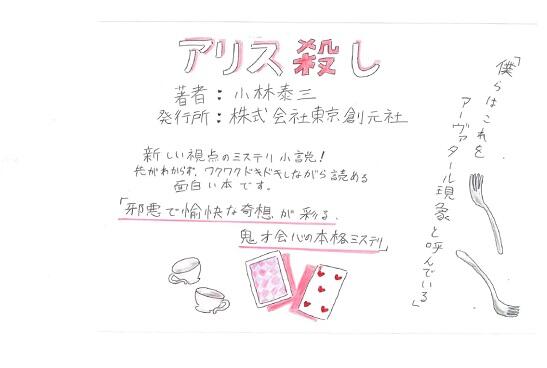 アリス殺し
著者：小林泰三
発行所：株式会社東京創元社
新しい視点のミステリ小説！
先がわからず、ワクワクドキドキしながら読める
面白い本です。
「邪悪で愉快な奇想が彩る、
鬼才会心の本格ミステリ」
「僕らはこれを
アーヴァタール現象と呼んでいる」